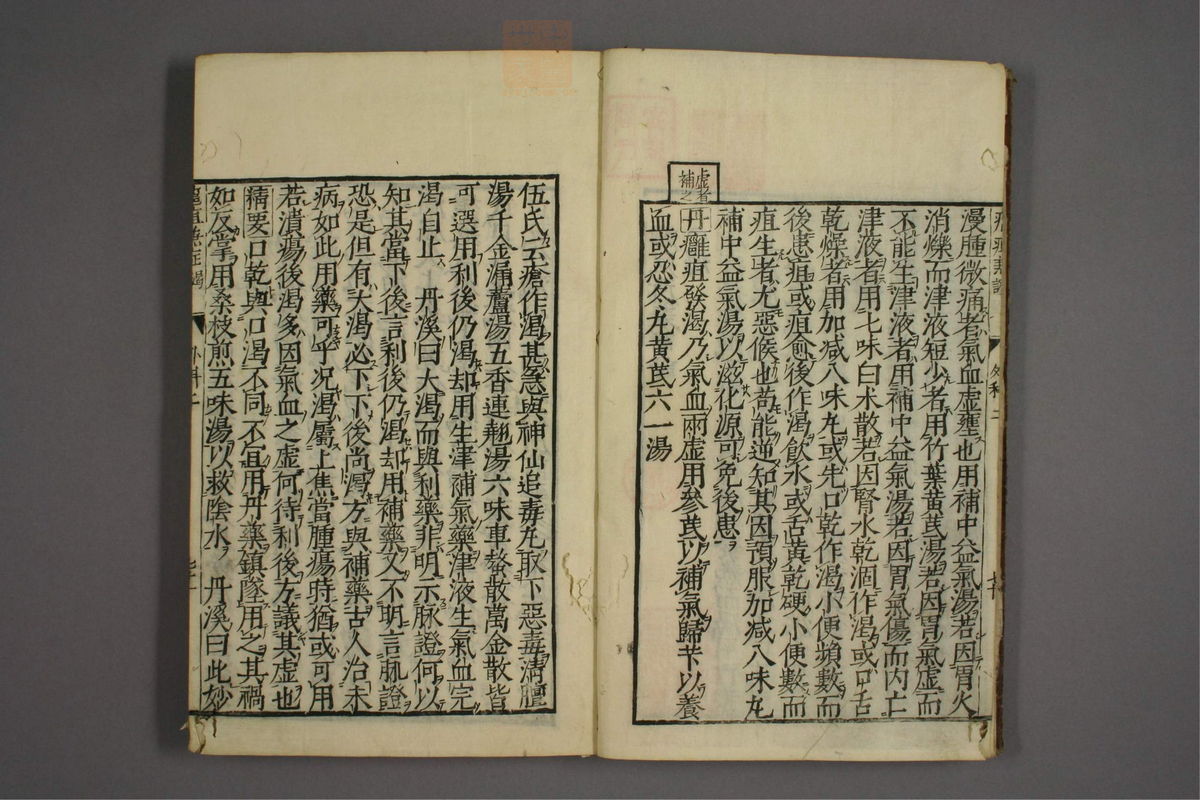 漫腫微痛者氣血虛壅也用補中益氣湯若因胃火
消爍而津液短少者用竹葉黃茋湯若因胃氣虛而
不能生津液者用補中益氣湯若因胃氣傷而内亡
津液者用七味白术散若因腎水乾涸作渴或口舌
乾燥者用加减八味丸或先口乾作渴小便頻數而
後患疽或疽愈後作渴飲水或舌黃乾硬小便數而
疽生者尤惡候也苟能逆知其因預服加减八味丸
補中益氣湯以滋化源可免後患
虛者補之
丹癰疽發渴乃氣血兩虛用參茋以補氣歸芐以養
血或忍冬丸黃茋六一湯
伍氏云瘡作渴甚急與神仙追毒丸取下惡毒清膻
湯千金漏蘆湯五香連翹湯六味車螯散萬金散皆
可選用利後仍渴却用生津補氣藥津液生氣血完
渴自止 丹溪曰大渴而與利藥非明示脉證何以
知其當下後言利後仍渴却用補藥又不明言脉證
恐是但有大渴必下下後尚渴方與補藥古人治未
病如此用藥可乎况渴屬上焦當腫瘍時猶或可用
若潰瘍後渴多因氣血之虛何待利後方議其虛也
精要口乾與口渴不同不宜用丹藥鎮墜用之其禍
如反掌用桑枝煎五味湯以救陰水 丹溪曰此妙